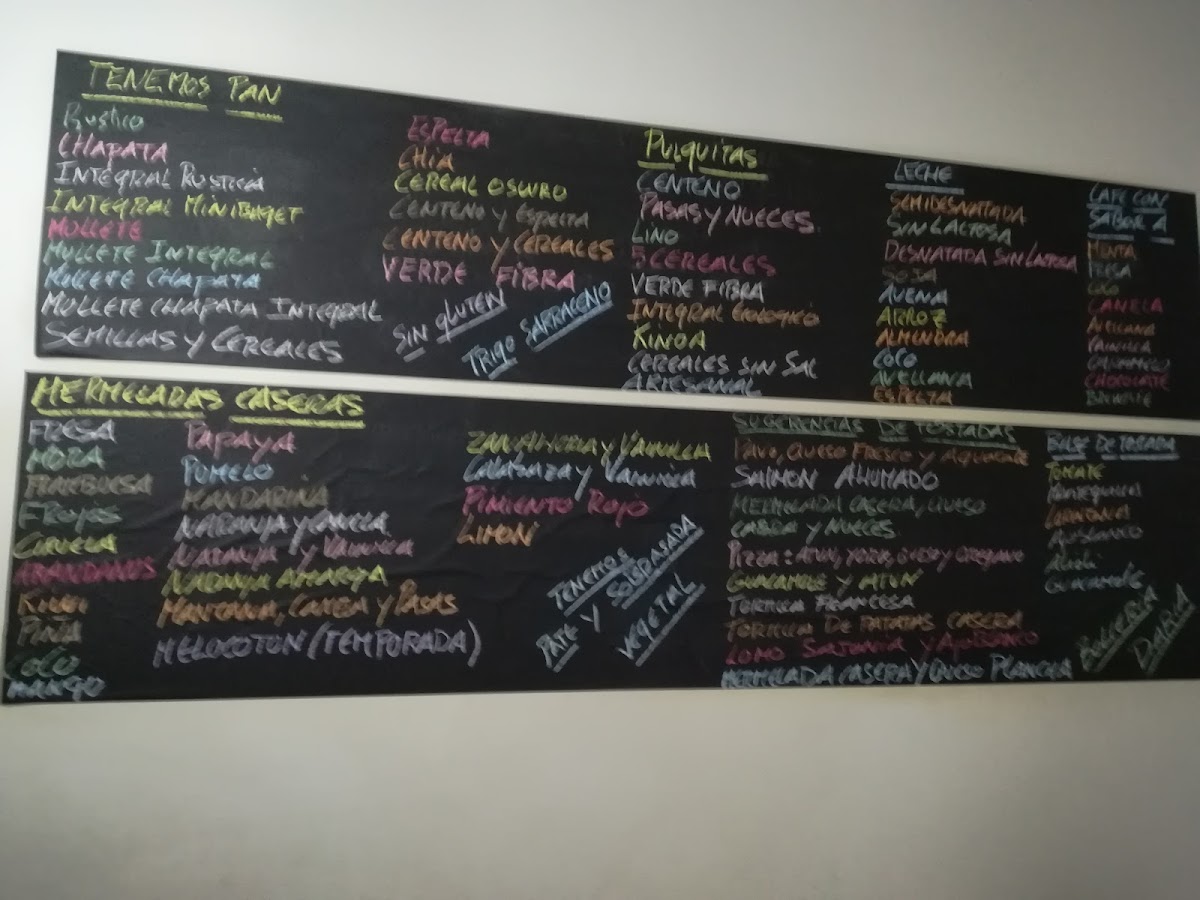 TENEMOS PAN
RUSTICO
CHAPATA
INTEGRAL RUSTICA
INTEGRAL MINIBAGET
MOLLETE
MOLLETE INTEGRAL
MOLLETE CHAPATA
MOLLETE CHAPATA INTEGRAL
SEMILLAS Y CEREALES
ESPELTA
CHIA
CEREAL OSCURO
CENTENO Y ESPELTA
CENTENO Y CEREALES
VERDE FIBRA
SIN GLUTEN
TRIGO SARRACENO
PULGUITAS
CENTENO
PASAS Y NUECES
LINO
5 CEREALES
VERDE FIBRA
INTEGRAL ECOLOGICO
KINOA
CEREALES SIN SAL
ARTESANAL
LECHE
SEMIDESNATADA
SIN LACTOSA
DESNATADA SIN LACTOSA
SOJA
AVENA
ARROZ
ALMENDRA
COCO
AVELLANA
ESPELTA
CAFE CON
SABOR A
MENTA
FRESA
COCO
CANELA
AVELLANA
VAINILLA
CARAMELO
CHOCOLATE
BROWNIE
MERMELADAS CASERAS
FRESA
MORA
FRAMBUESA
F. ROJOS
CIRUELA
ARANDANOS
KIWI
PIÑA
COCO
MANGO
PAPAYA
POMELO
MANDARINA
NARANJA Y CANELA
NARANJA Y VAINILLA
NARANJA AMARGA
MANZANA, CANELA Y PASAS
MELOCOTON (TEMPORADA)
ZANAHORIA Y VAINILLA
CALABAZA Y VAINILLA
PIMIENTO ROJO
LIMON
TENEMOS
PATE Y SOBRASADA
VEGETAL
SUGERENCIAS DE TOSTADAS
PAVO, QUESO FRESCO Y AGUACATE
SALMON AHUMADO
MERMELADA CASERA, QUESO
CABRA Y NUECES
PIZZA: ATUN, YORK, QUESO Y OREGANO
GUACAMOLE Y ATUN
TORTILLA FRANCESA
TORTILLA DE PATATAS CASERA
LOMO SAJONIA Y AJOBLANCO
MERMELADA CASERA Y QUESO PLANCHA
BASE DE TOSTADA
TOMATE
MANTEQUILLA
AJOBLANCO
ALIOLI
GUACAMOLE